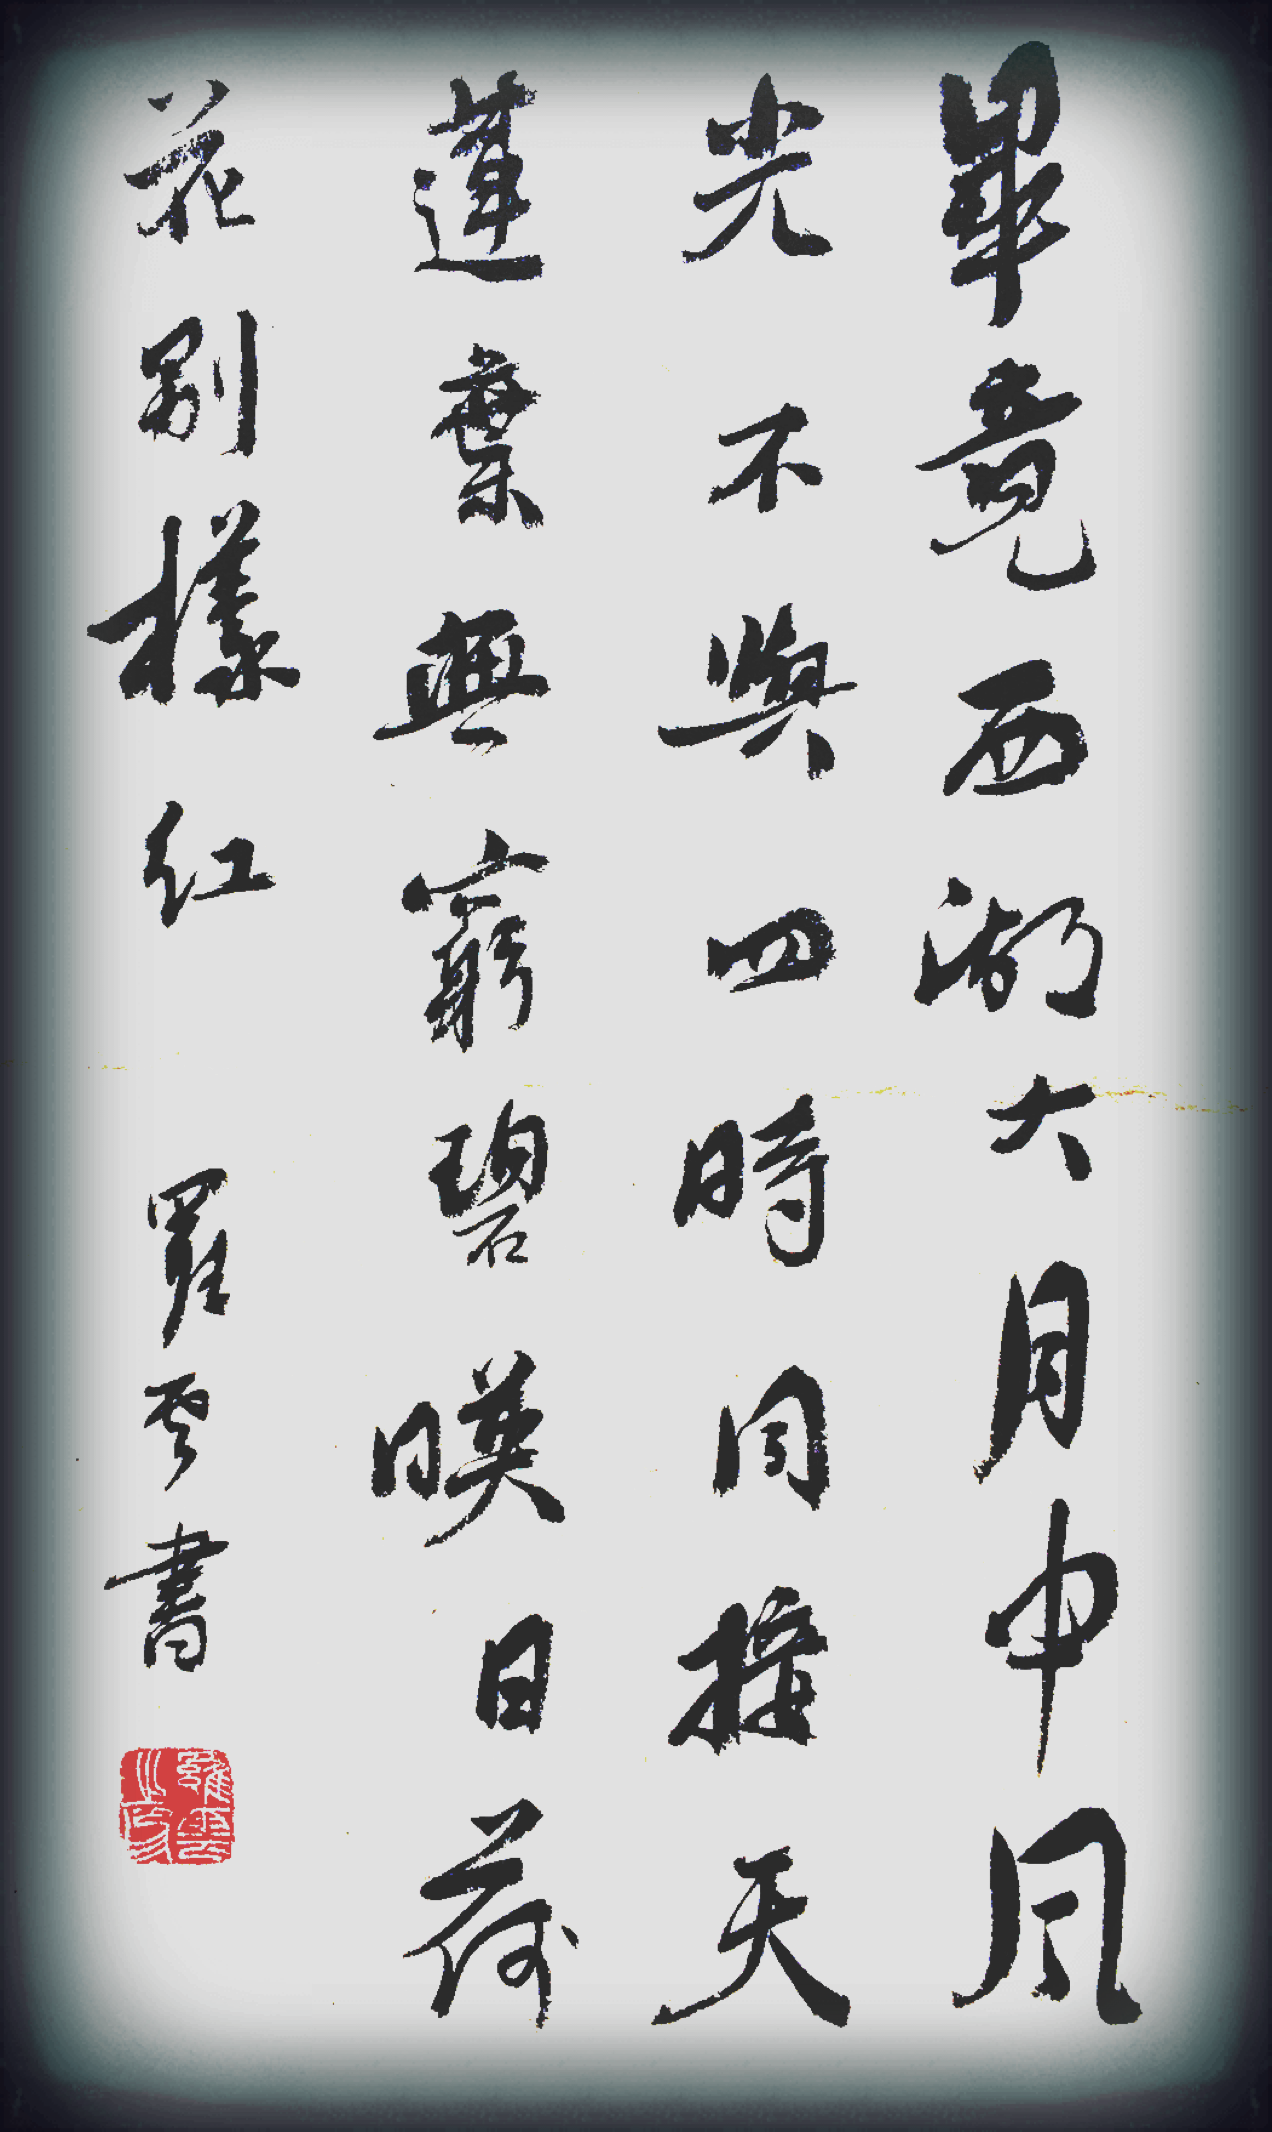 畢竟西湖六月中風
光不與四時同接天
蓮葉無窮碧暎日荷
花別樣紅 羅雲書
羅雲之印